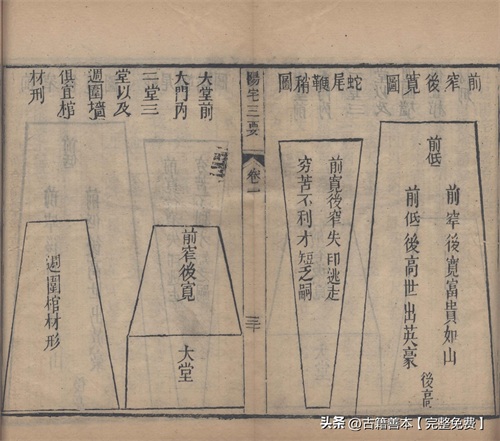 前窄後寬圖
前低
前窄後寬富貴如山
前低後高世出英豪
後高
蛇尾鞭稍圖
前寬後窄失印逃走
穷苦不利才短乏嗣
陽宅三要
卷一
三十
大堂前
大門内
二堂三
堂以及
週圍墻
俱宜棺
材刑
前窄後寬
大堂
週圍棺材形
头条 @古籍善本【完整免费】